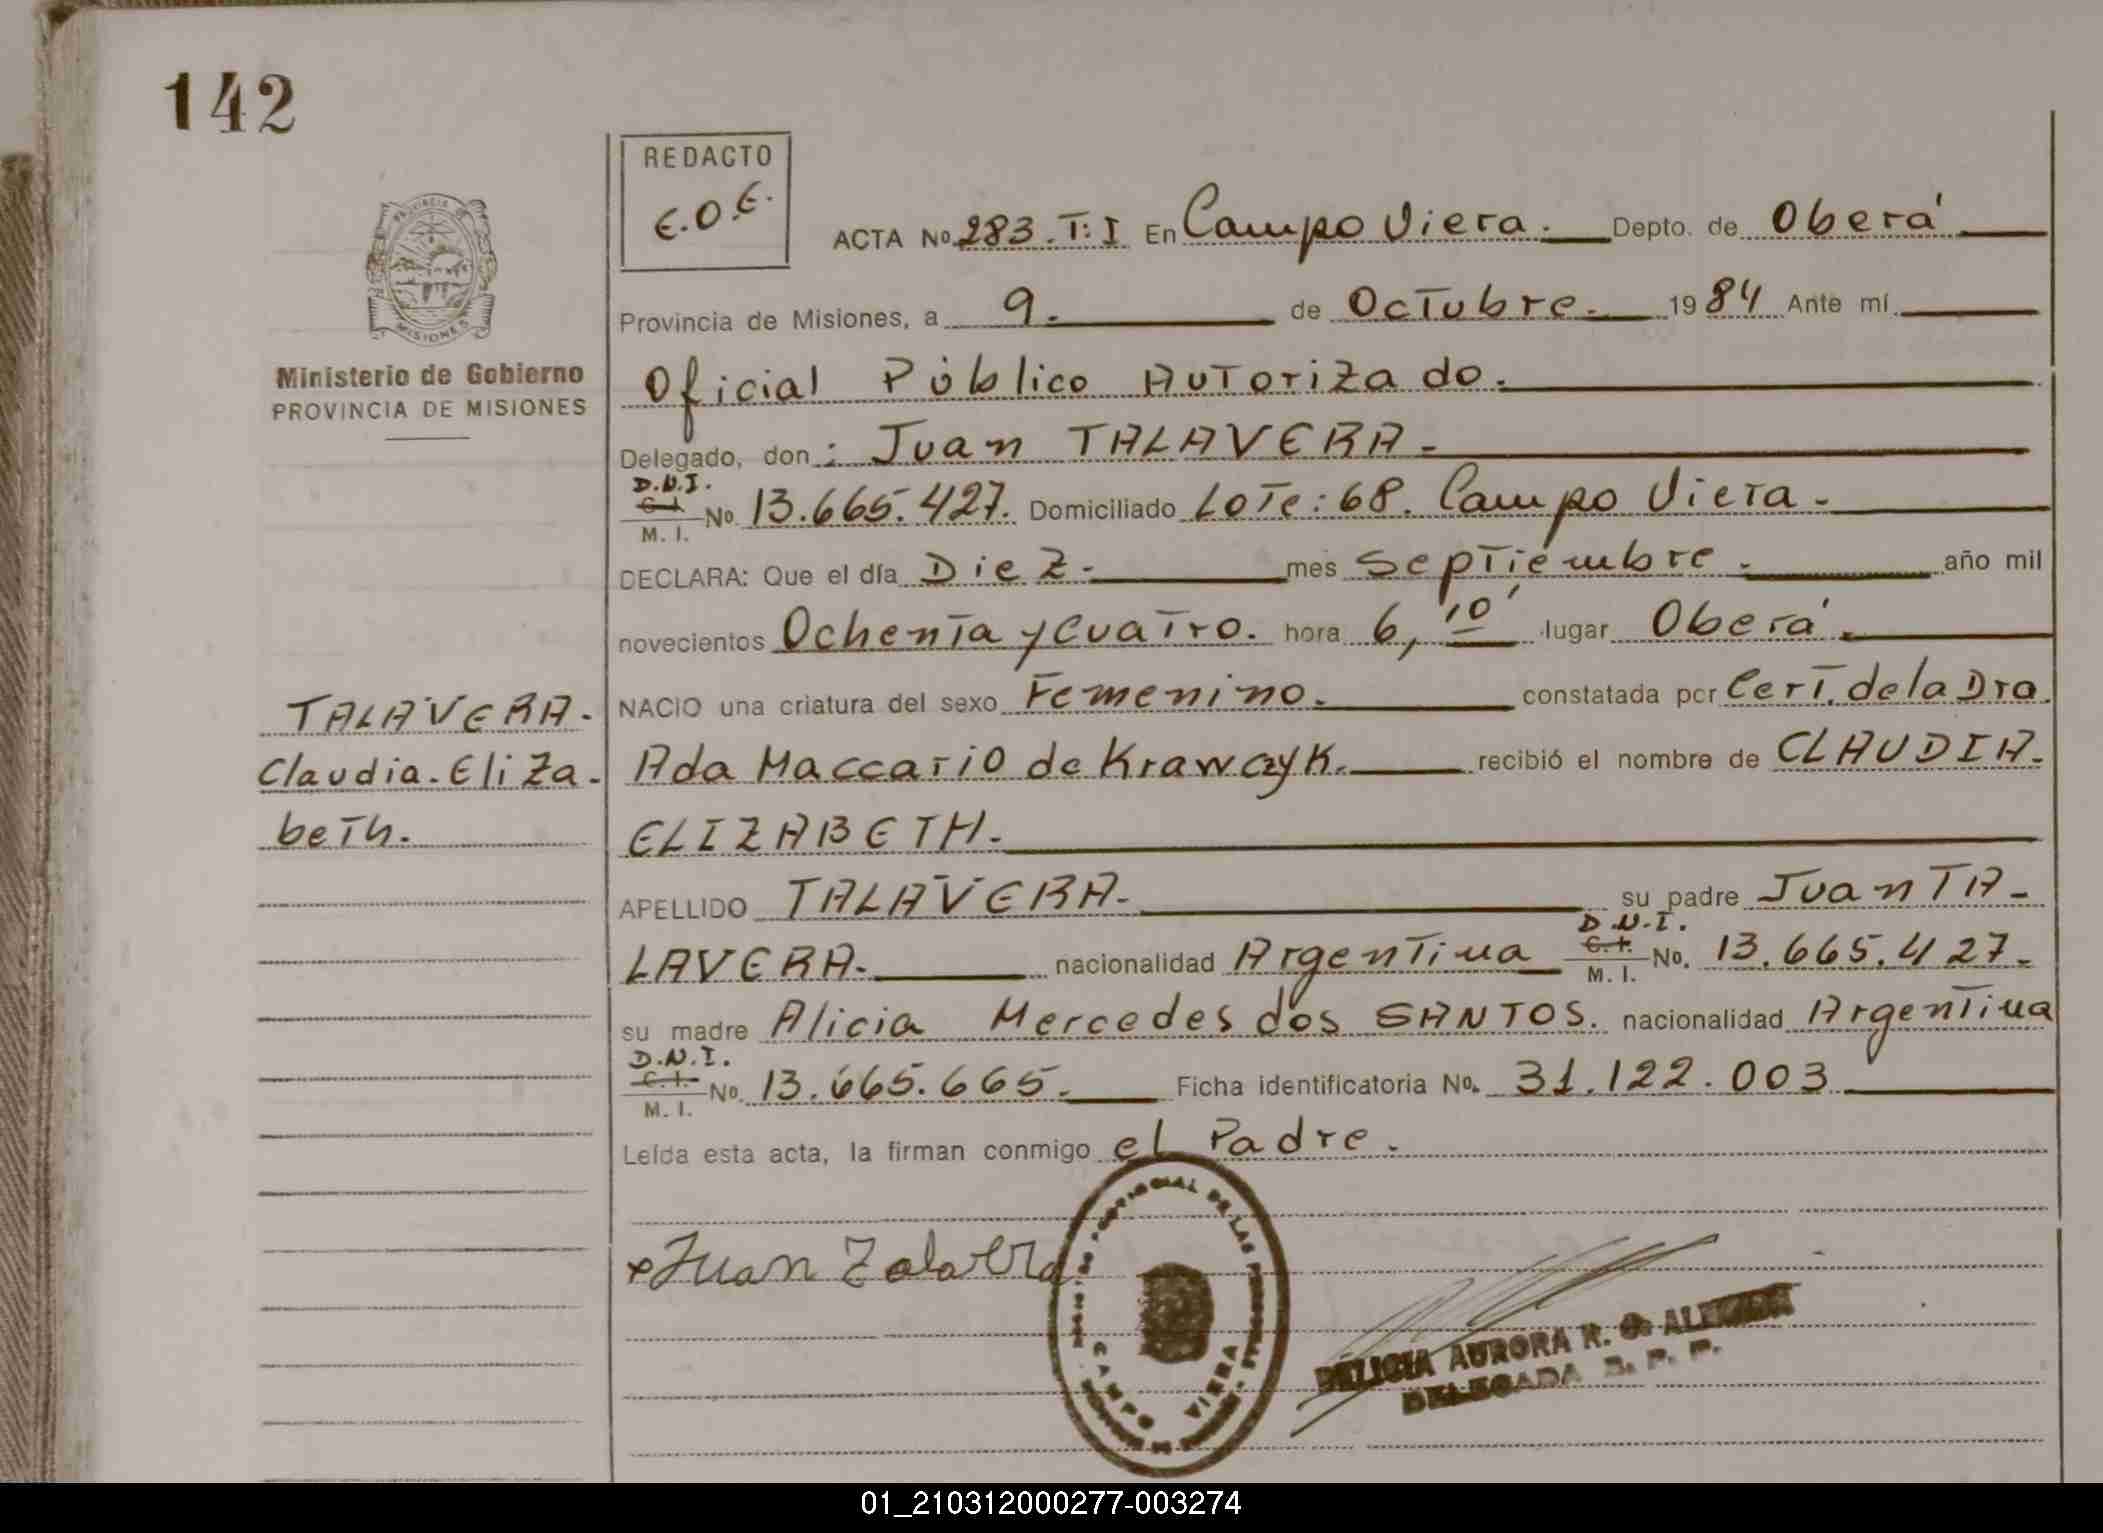 142
REDACTO
E.O.E.
ACTA No. 283. T: I En Campo Viera. Depto. de Oberá
PROVINCIA DE
MISIONES
Provincia de Misiones, a 9. de Octubre. 1984 Ante mí
Ministerio de Gobierno
PROVINCIA DE MISIONES
Oficial Público Autorizado.
Delegado, don: Juan TALAVERA.
D.N.I.
C. I.
M. I. No 13.665.427. Domiciliado Lote: 68. Campo Viera.
DECLARA: Que el día Diez. mes Septiembre. año mil
novecientos Ochenta y Cuatro. hora 6, 10' lugar Oberá.
TALAVERA.
Claudia. Eliza-
beth.
NACIO una criatura del sexo Femenino. constatada por Cert. de la Dra.
Ada Maccario de Krawczyk. recibió el nombre de CLAUDIA.
ELIZABETH.
APELLIDO TALAVERA. su padre Juan TA-
LAVERA. nacionalidad Argentina D.N.I. C. I. M. I. No. 13.665.427.
su madre Alicia Mercedes dos SANTOS. nacionalidad Argentina
D.N.I.
C. I.
M. I. No. 13.665.665. Ficha identificatoria No. 31.122.003
Leída esta acta, la firman conmigo el Padre.
x Juan Talavera
PROVINCIAL DE LAS
CAMPO VIERA
DELICIA AURORA R. de
DELEGADA R. P. P.
01_210312000277-003274